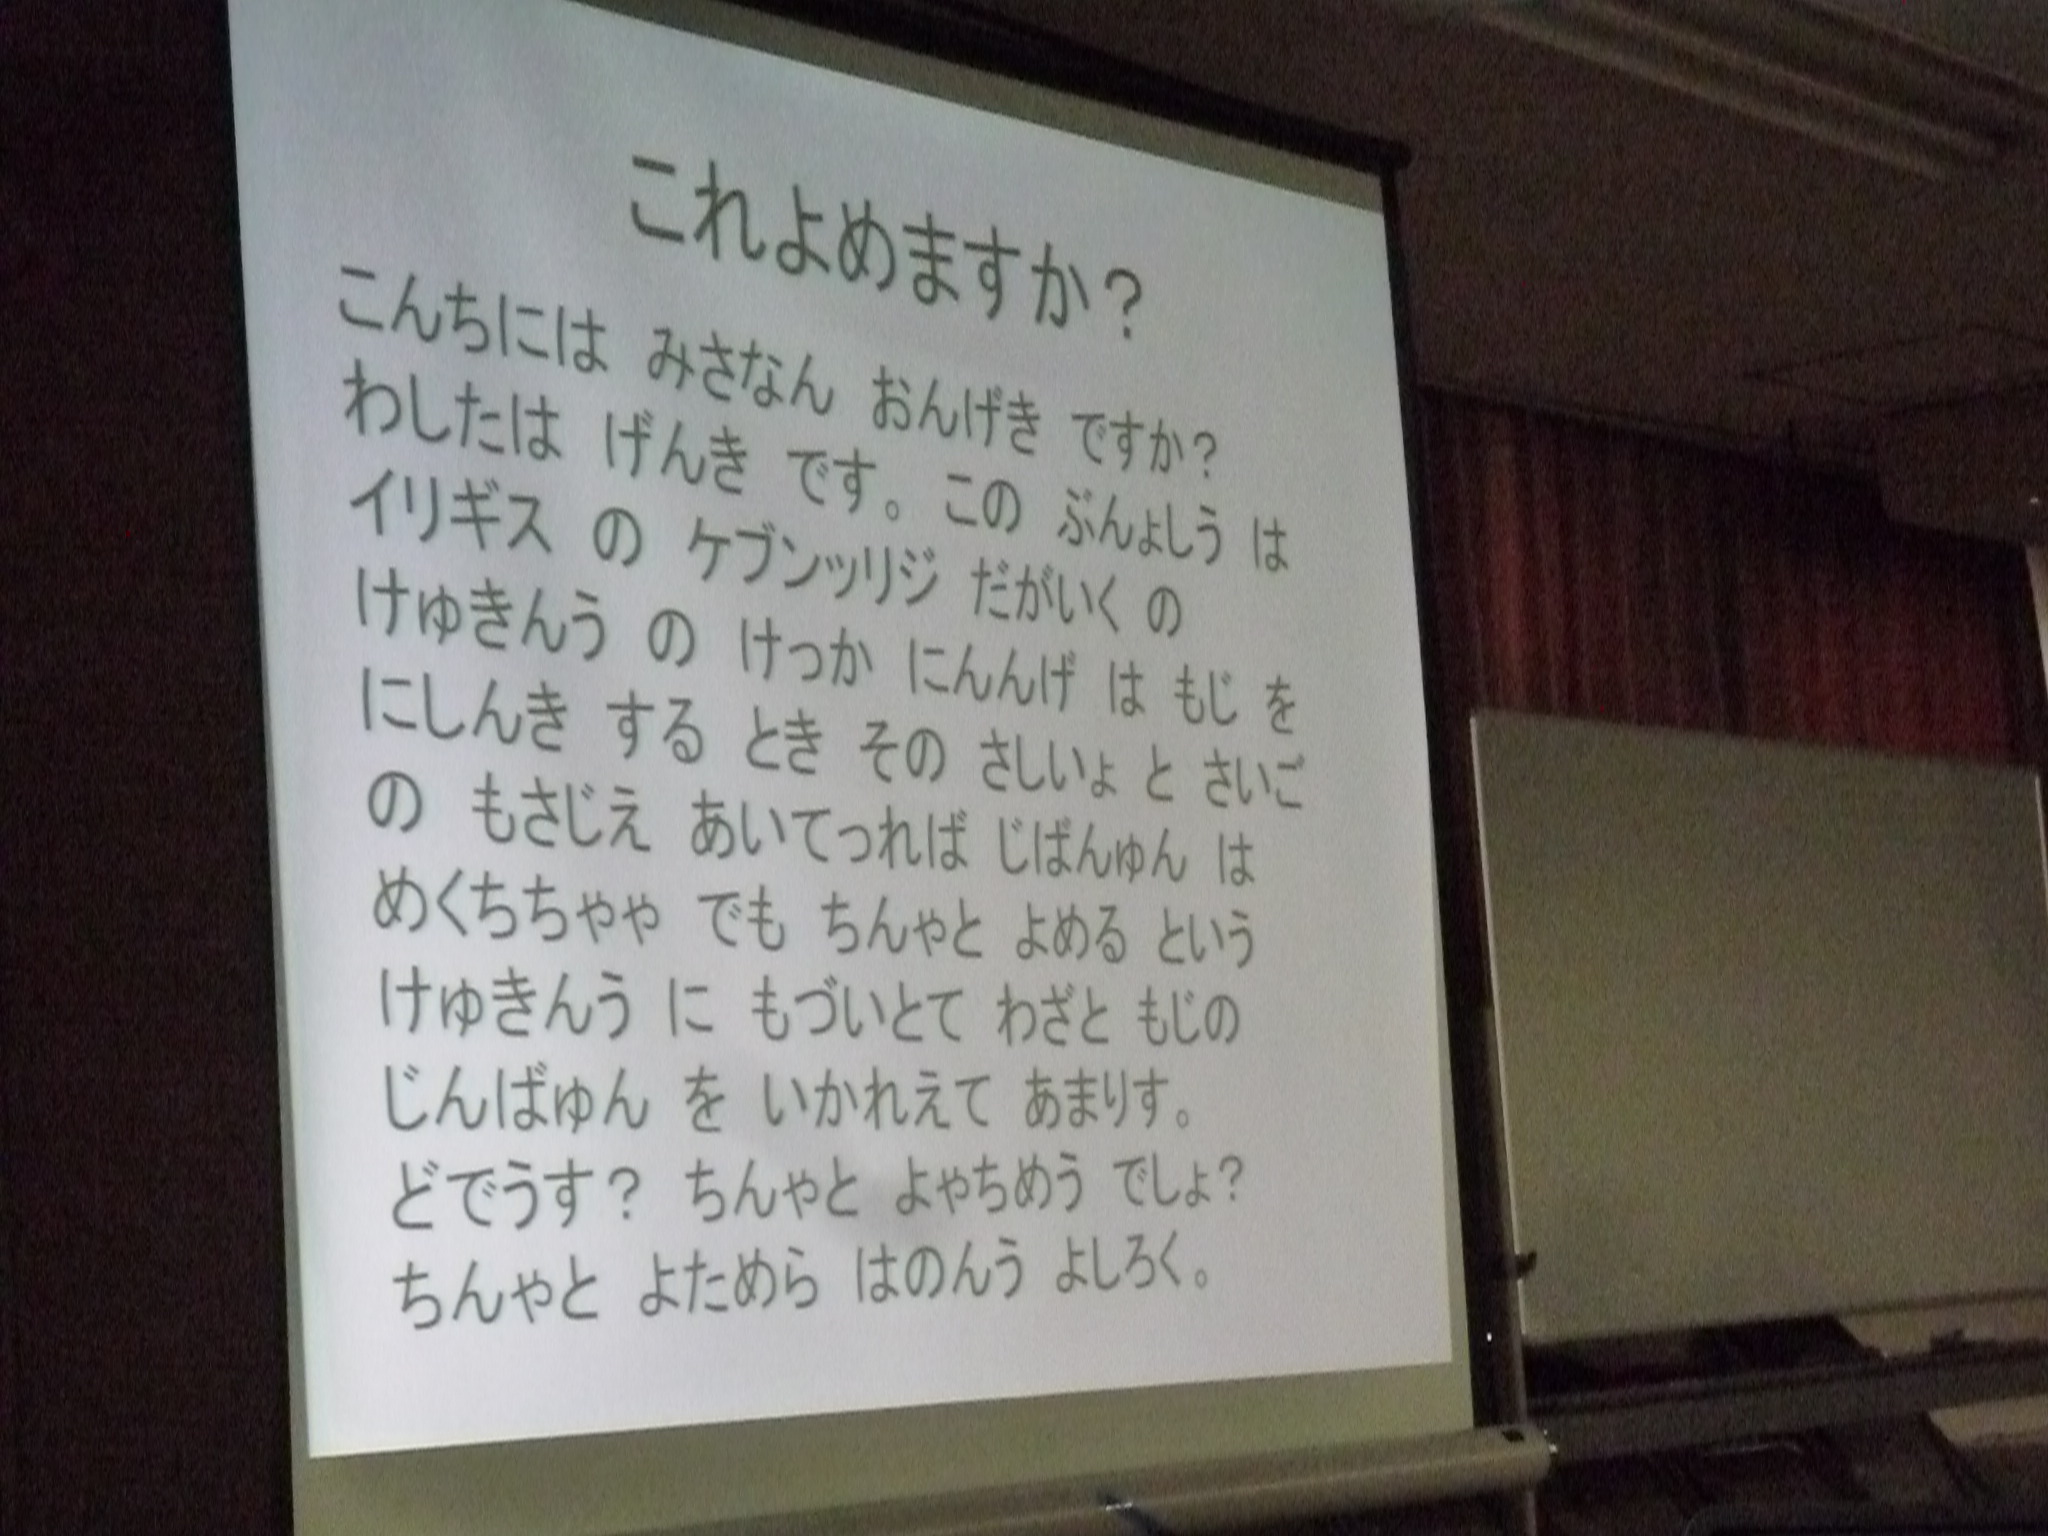 これよめますか?
こんちには みさなん おんげき ですか?
わしたは げんき です。この ぶんょしう は
イリギス の ケブンッリジ だがいく の
けゅきんう の けっか にんんげ は もじ を
にしんき する とき その さしいょ と さいご
の もさじえ あいてっれば じばんゅん は
めくちちゃゃ でも ちんゃと よめる という
けゅきんう に もづいとて わざと もじの
じんばゅん を いかれえて あまりす。
どでうす? ちんゃと よゃちめう でしょ?
ちんゃと よためら はのんう よしろく。